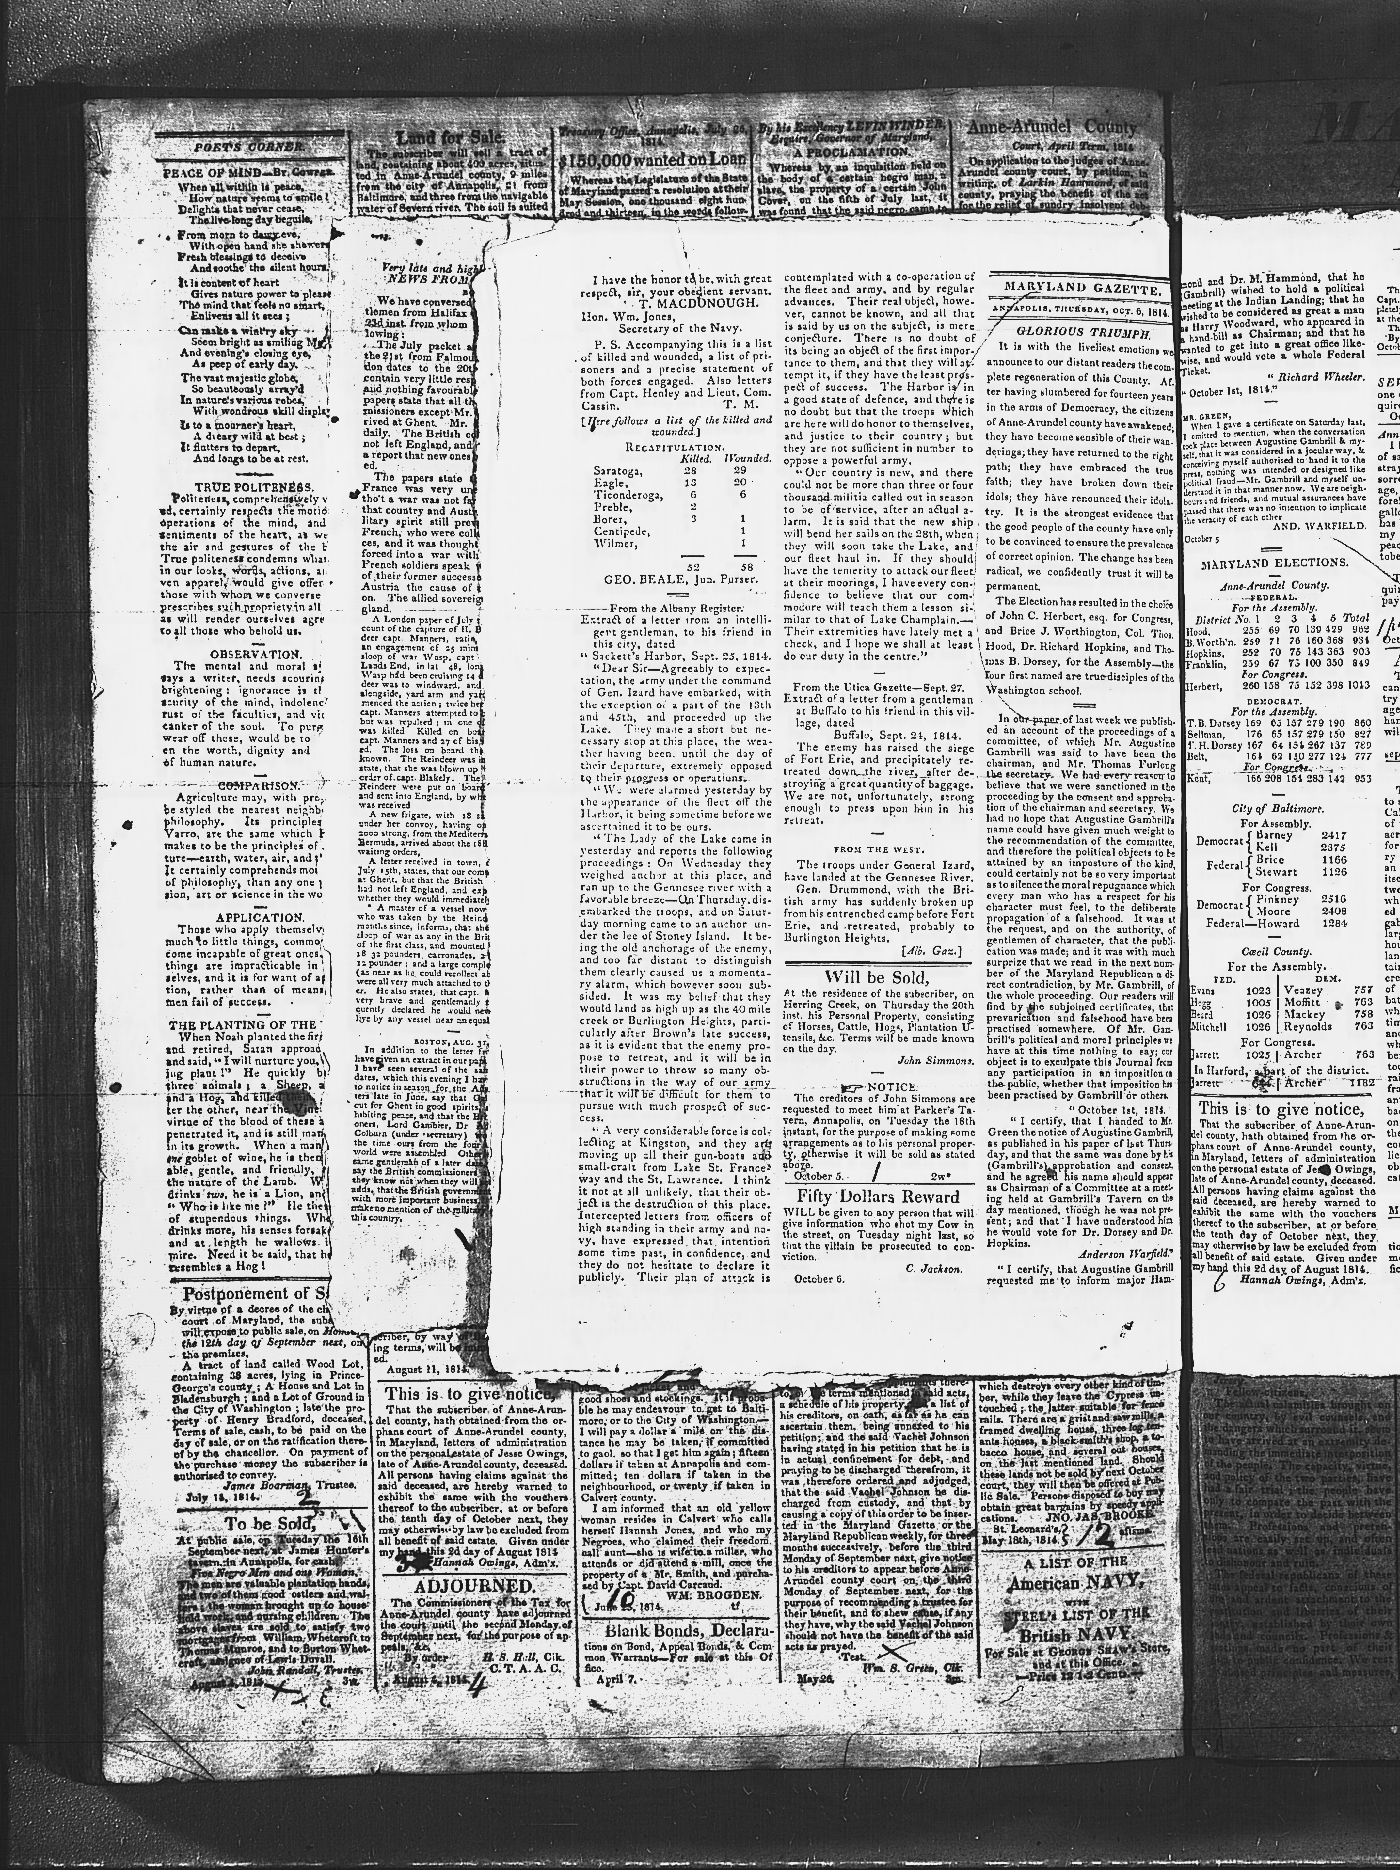 POET'S CORNER.
PEACE OF MIND—BY. COWPER.
When all within is peace,
How nature seems to smile!
Delights that never cease,
The live-long day beguile,
From morn to dewy eve,
With open hand she showers
Fresh blessings to deceive
And soothe the silent hours.
It is content of heart
Gives nature power to please
The mind that feels no smart,
Enlivens all it sees;
Can make a wint'ry sky
Seem bright as smiling
And evening's closing eye,
As peep of early day.
The vast majestic globe,
So beauteously array'd
In nature's various robes,
With wondrous skill
Is to a mourner's heart,
A dreary wild at best;
It flutters to depart,
And longs to be at rest.
TRUE POLITENESS.
Politeness, comprehensively
ed, certainly respects the
operations of the mind, and
sentiments of the heart, as
the air and gestures of the
True politeness condemns what
in our looks, words, actions,
ven apparel, would give
those with whom we converse
prescribes such propriety in all
as will render ourselves
to all those who behold us.
OBSERVATION.
The mental and moral
says a writer, needs
brightening: ignorance is
scurity of the mind,
rust of the faculties, and
canker of the soul. To
wear off these, would be to
en the worth, dignity and
of human nature.
COMPARISON.
Agriculture may, with
be styled the nearest
philosophy. Its principles
Varro, are the same which
makes to be the principles of
ture—earth, water, air, and
It certainly comprehends
of philosophy, than any one
sion, art or science in the
APPLICATION.
Those who apply
much to little things,
come incapable of great ones,
things are impracticable in
selves, and it is for want of
tion, rather than of means,
men fail of success.
THE PLANTING OF THE
When Noah planted the
and retired, Satan
and said, "I will nurture you,
ing plant!" He quickly
three animals; a Sheep,
and a Hog, and killed
ter the other, near the Vine.
virtue of the blood of these
penetrated it, and is still
in its growth. When a man
one goblet of wine, he is then
able, gentle, and friendly,
the nature of the Lamb.
drinks two, he is a Lion,
"Who is like me?" He
of stupendous things.
drinks more, his senses
and at length he wallows
mire. Need it be said, that
resembles a Hog!
Postponement of
By virtue of a decree of the
court of Maryland, the
will expose to public sale, on
the 12th day of September next, on
the premises,
A tract of land called Wood Lot,
containing 38 acres, lying in Prince-
George's county; A House and Lot in
Bladensburgh; and a Lot of Ground in
the City of Washington; late the pro-
perty of Henry Bradford, deceased.
Terms of sale, cash, to be paid on the
day of sale, or on the ratification there-
of by the chancellor. On payment of
the purchase money the subscriber is
authorised to convey.
James Boarman, Trustee.
July 14, 1814.
To be Sold,
At public sale, on Tuesday the 16th
September next, at James Hunter's
tavern in Annapolis, for cash,
Five Negro Men and one Woman.
The men are valuable plantation hands,
and two of them good ostlers and
the woman brought up to house
work, and nursing children. The
above slaves are sold to satisfy two
mortgages from William Whetcroft to
Thomas Munroe, and to Burton Whet-
croft, assignee of Lewis Duvall.
John Randall, Trustee.
Land for Sale.
The subscriber will sell a tract of
land, containing about 400 acres, situa-
ted in Anne-Arundel county, 9 miles
from the city of Annapolis, 21 from
Baltimore, and three from the navigable
water of Severn river. The soil is suited
Very late and
NEWS FROM
We have conversed
tlemen from Halifax
23d inst. from whom
lowing:
The July packet
the 21st from
don dates to the
contain very little
and nothing favourable
papers state that all
missioners except Mr.
rived at Ghent. Mr.
daily. The British
not left England, and
a report that new
ed.
The papers state
France was very
tho't a war was not
that country and
litary spirit still
French, who were
ces, and it was thought
forced into a war with
French soldiers speak
of their former success
Austria the cause of
on. The allied
gland.
A London paper of July
count of the capture of H. B
deer capt. Manners,
an engagement of 25 min
sloop of war Wasp, capt
Lands End, in lat 48,
Wasp had been cruising 14
deer was to windward, and
alongside, yard arm and
menced the action; twice
capt. Manners attempted to
but was repulsed; in one
was killed. Killed on
capt. Manners and 27 of his
ed. The loss on board the
known. The Reindeer was in
state, that she was blown up
order of capt. Blakely. The
Reindeer were put on board
and sent into England, by
was received
A new frigate, with 18
under her convoy, having
2000 strong, from the
Bermuda, arrived about the 18th
waiting orders.
A letter received in town,
July 15th, states, that our
at Ghent, but that the British
had not left England, and
whether they would immediately
A master of a vessel now
who was taken by the
months since, informs, that she
sloop of war as any in the
of the first class, and mounted
18 32 pounders, carronades,
12 pounder; and a large
(as near as he could recollect
were all very much attached to
er. He also states, that capt.
very brave and gentlemanly
quently declared he would
lye by any vessel near an equal
BOSTON, AUG. 31.
In addition to the letter
have given an extract in our
I have seen several of the
dates, which this evening I
to notice in season for the
ters late in June, say that
cut for Ghent in good spirits,
hisiting peace, and that the
oners, Lord Gambier, Dr
Colburn (under secretary)
the time ours from the
world were assembled
same gentleman of a later
say the British commissioners
they know not when they will
adds, that the British government
with more important business,
makeno mention of the
this country.
criber, by way of
ing terms, will be
ed.
August 11, 1814.
This is to give notice,
That the subscriber of Anne-Arun-
del county, hath obtained from the or-
phans court of Anne-Arundel county,
in Maryland, letters of administration
on the personal estate of Jesse Owings,
late of Anne-Arundel county, deceased.
All persons having claims against the
said deceased, are hereby warned to
exhibit the same with the vouchers
thereof to the subscriber, at or before
the tenth day of October next, they
may otherwise by law be excluded from
all benefit of said estate. Given under
my hand this 2d day of August 1814
Hannah Owings, Adm'x.
ADJOURNED.
The Commissioners of the Tax for
Anne-Arundel county have adjourned
the court until the second Monday of
September next, for the purpose of ap-
peals, &c.
By order
H. S. Hall, Clk.
C. T. A. A. C.
4
Treasury Office, Annapolis, July 26,
1814.
$150,000 wanted on Loan
Whereas the Legislature of the State
of Maryland passed a resolution at their
May Session, one thousand eight hun-
dred and thirteen, in the words follow-
By his Excellency LEVIN WINDER,
Esquire, Governor of Maryland,
A PROCLAMATION.
Whereas by an inquisition held on
the body of a certain negro man, a
slave, the property of a certain John
Cover, on the fifth of July last, it
was found that the said negro came to
Anne-Arundel County
Court, April Term, 1814
On application to the judges of Anne-
Arundel county court, by petition, in
writing, of Larkin Hammond, of said
county, praying the benefit of the act
for the relief of sundry insolvent deb-
I have the honor to be, with great
respect, sir, your obedient servant.
T. MACDONOUGH.
Hon. Wm. Jones,
Secretary of the Navy.
P. S. Accompanying this is a list
of killed and wounded, a list of pri-
soners and a precise statement of
both forces engaged. Also letters
from Capt. Henley and Lieut. Com.
Cassin. T. M.
[Here follows a list of the killed and
wounded.]
RECAPITULATION.
Killed. Wounded.
Saratoga, 28 29
Eagle, 13 20
Ticonderoga, 6 6
Preble, 2
Borer, 3 1
Centipede, 1
Wilmer, 1
52 58
GEO. BEALE, Jun. Purser.
From the Albany Register.
Extract of a letter from an intelli-
gent gentleman, to his friend in
this city, dated
"Sackett's Harbor, Sept. 25, 1814.
"Dear Sir—Agreeably to expec-
tation, the army under the command
of Gen. Izard have embarked, with
the exception of a part of the 13th
and 45th, and proceeded up the
Lake. They made a short but ne-
cessary stop at this place, the wea-
ther having been, until the day of
their departure, extremely opposed
to their progress or operations.
"We were alarmed yesterday by
the appearance of the fleet off the
Harbor, it being sometime before we
ascertained it to be ours.
"The Lady of the Lake came in
yesterday and reports the following
proceedings: On Wednesday they
weighed anchor at this place, and
ran up to the Gennesee river with a
favorable breeze—On Thursday, dis-
embarked the troops, and on Satur-
day morning came to an anchor un-
der the lee of Stoney Island. It be-
ing the old anchorage of the enemy,
and too far distant to distinguish
them clearly caused us a momenta-
ry alarm, which however soon sub-
sided. It was my belief that they
would land as high up as the 40 mile
creek or Burlington Heights, parti-
cularly after Brown's late success,
as it is evident that the enemy pro-
pose to retreat, and it will be in
their power to throw so many ob-
structions in the way of our army
that it will be difficult for them to
pursue with much prospect of suc-
cess.
"A very considerable force is col-
lecting at Kingston, and they are
moving up all their gun-boats and
small-craft from Lake St. Frances
way and the St. Lawrence. I think
it not at all unlikely, that their ob-
ject is the destruction of this place.
Intercepted letters from officers of
high standing in their army and na-
vy, have expressed that intention
some time past, in confidence, and
they do not hesitate to declare it
publicly. Their plan of attack is
contemplated with a co-operation of
the fleet and army, and by regular
advances. Their real object, howe-
ver, cannot be known, and all that
is said by us on the subject, is mere
conjecture. There is no doubt of
its being an object of the first impor-
tance to them, and that they will at-
tempt it, if they have the least pros-
pect of success. The Harbor is in
a good state of defence, and there is
no doubt but that the troops which
are here will do honor to themselves,
and justice to their country; but
they are not sufficient in number to
oppose a powerful army.
"Our country is new, and there
could not be more than three or four
thousand militia called out in season
to be of service, after an actual a-
larm. It is said that the new ship
will bend her sails on the 28th, when
they will soon take the Lake, and
our fleet haul in. If they should
have the temerity to attack our fleet
at their moorings, I have every con-
fidence to believe that our com-
modore will teach them a lesson si-
milar to that of Lake Champlain.—
Their extremities have lately met a
check, and I hope we shall at least
do our duty in the centre."
From the Utica Gazette—Sept. 27.
Extract of a letter from a gentleman
at Buffalo to his friend in this vil-
lage, dated
Buffalo, Sept. 24, 1814.
The enemy has raised the siege
of Fort Erie, and precipitately re-
treated down the river, after de-
stroying a great quantity of baggage.
We are not, unfortunately, strong
enough to press upon him in his
retreat.
FROM THE WEST.
The troops under General Izard,
have landed at the Gennesee River.
Gen. Drummond, with the Bri-
tish army has suddenly broken up
from his entrenched camp before Fort
Erie, and retreated, probably to
Burlington Heights.
[Alb. Gaz.]
Will be Sold,
At the residence of the subscriber, on
Herring Creek, on Thursday the 20th
inst. his Personal Property, consisting
of Horses, Cattle, Hogs, Plantation U-
tensils, &c. Terms will be made known
on the day.
John Simmons.
NOTICE.
The creditors of John Simmons are
requested to meet him at Parker's Ta-
vern, Annapolis, on Tuesday the 18th
instant, for the purpose of making some
arrangements as to his personal proper-
ty, otherwise it will be sold as stated
above.
October 5. 2w*
Fifty Dollars Reward
WILL be given to any person that will
give information who shot my Cow in
the street, on Tuesday night last, so
that the villain be prosecuted to con-
viction.
C. Jackson.
October 6.
MARYLAND GAZETTE.
ANNAPOLIS, THURSDAY, OCT. 6, 1814.
GLORIOUS TRIUMPH.
It is with the liveliest emotions we
announce to our distant readers the com-
plete regeneration of this County. Af-
ter having slumbered for fourteen years
in the arms of Democracy, the citizens
of Anne-Arundel county have awakened;
they have become sensible of their wan-
derings; they have returned to the right
path; they have embraced the true
faith; they have broken down their
idols; they have renounced their idola-
try. It is the strongest evidence that
the good people of the county have only
to be convinced to ensure the prevalence
of correct opinion. The change has been
radical, we confidently trust it will be
permanent.
The Election has resulted in the choice
of John C. Herbert, esq. for Congress,
and Brice J. Worthington, Col. Thos.
Hood, Dr. Richard Hopkins, and Tho-
mas B. Dorsey, for the Assembly—the
four first named are true disciples of the
Washington school.
In our paper of last week we publish-
ed an account of the proceedings of a
committee, of which Mr. Augustine
Gambrill was said to have been the
chairman, and Mr. Thomas Furlong
the secretary. We had every reason to
believe that we were sanctioned in the
proceeding by the consent and approba-
tion of the chairman and secretary. We
had no hope that Augustine Gambrill's
name could have given much weight to
the recommendation of the committee,
and therefore the political objects to be
attained by an imposture of the kind,
could certainly not be so very important
as to silence the moral repugnance which
every man who has a respect for his
character must feel, to the deliberate
propagation of a falsehood. It was at
the request, and on the authority, of
gentlemen of character, that the publi-
cation was made; and it was with much
surprise that we read in the next num-
ber of the Maryland Republican a di-
rect contradiction, by Mr. Gambrill, of
the whole proceeding. Our readers will
find by the subjoined certificates, that
prevarication and falsehood have been
practised somewhere. Of Mr. Gam-
brill's political and moral principles we
have at this time nothing to say; our
object is to exculpate this Journal from
any participation in an imposition on
the public, whether that imposition has
been practised by Gambrill or others.
"October 1st, 1814.
"I certify, that I handed to Mr.
Green the notice of Augustine Gambrill,
as published in his paper of last Thurs-
day, and that the same was done by his
(Gambrill's) approbation and consent,
and he agreed his name should appear
as Chairman of a Committee at a meet-
ing held at Gambrill's Tavern on the
day mentioned, though he was not pre-
sent; and that I have understood him
he would vote for Dr. Dorsey and Dr.
Hopkins.
Anderson Warfield."
"I certify, that Augustine Gambrill
requested me to inform major Ham-
mond and Dr. M. Hammond, that he
(Gambrill) wished to hold a political
meeting at the Indian Landing; that he
wished to be considered as great a man
as Harry Woodward, who appeared in
a hand-bill as Chairman; and that he
wanted to get into a great office like-
wise, and would vote a whole Federal
Ticket.
"Richard Wheeler.
"October 1st, 1814."
MR. GREEN,
When I gave a certificate on Saturday last,
I omitted to mention, when the conversation
took place between Augustine Gambrill & my-
self, that it was considered in a jocular way, &
conceiving myself authorised to hand it to the
press, nothing was intended or designed like
political fraud—Mr. Gambrill and myself un-
derstand it in that manner now. We are neigh-
bours and friends, and mutual assurances have
passed that there was no intention to implicate
the veracity of each other
AND. WARFIELD.
October 5
MARYLAND ELECTIONS.
Anne-Arundel County.
FEDERAL.
For the Assembly.
District No. 1 2 3 4 5 Total
Hood, 255 69 70 139 429 962
B. Worth'n. 259 71 76 160 368 934
Hopkins, 252 70 75 143 363 903
Franklin, 259 67 73 100 350 849
For Congress.
Herbert, 260 158 75 152 398 1043
DEMOCRAT.
For the Assembly.
T. B. Dorsey 169 65 157 279 190 860
Sellman, 176 65 157 279 150 827
T. H. Dorsey 167 64 154 267 137 789
Belt, 164 62 140 277 124 777
For Congress.
Kent, 166 208 154 283 142 953
City of Baltimore.
For Assembly.
Democrat { Barney 2417
Kell 2375
Federal { Brice 1166
Stewart 1126
For Congress.
Democrat { Pinkney 2516
Moore 2408
Federal—Howard 1284
Cæcil County.
For the Assembly.
FED. DEM.
Evans 1023 | Veazey 757
Hogg 1005 | Moffit 763
Beard 1026 | Mackey 758
Mitchell 1026 | Reynolds 763
For Congress.
Jarrett 1025 | Archer 763
In Harford, a part of the district.
Jarrett | Archer 1182
This is to give notice,
That the subscriber of Anne-Arun-
del county, hath obtained from the or-
phans court of Anne-Arundel county,
in Maryland, letters of administration
on the personal estate of Jesse Owings,
late of Anne-Arundel county, deceased.
All persons having claims against the
said deceased, are hereby warned to
exhibit the same with the vouchers
thereof to the subscriber, at or before
the tenth day of October next, they
may otherwise by law be excluded from
all benefit of said estate. Given under
my hand this 2d day of August 1814.
6 Hannah Owings, Adm'x.
good shoes and stockings. It is proba-
ble he may endeavour to get to Balti-
more, or to the City of Washington.—
I will pay a dollar a mile on the dis-
tance he may be taken, if committed
to gaol, so that I get him again; fifteen
dollars if taken at Annapolis and com-
mitted; ten dollars if taken in the
neighbourhood, or twenty if taken in
Calvert county.
I am informed that an old yellow
woman resides in Calvert who calls
herself Hannah Jones, and who my
Negroes, who claimed their freedom
call aunt—she is wife to a miller, who
attends or did attend a mill, once the
property of a Mr. Smith, and purcha-
sed by Capt. David Carcaud.
WM: BROGDEN.
June 23, 1814. tf.
Blank Bonds, Declara-
tions on Bond, Appeal Bonds, & Com-
mon Warrants—For sale at this Of
fice.
April 7.
to, on the terms mentioned in said acts,
a schedule of his property, and a list of
his creditors, on oath, as far as he can
ascertain them, being annexed to his
petition; and the said Vachel Johnson
having stated in his petition that he is
in actual confinement for debt, and
praying to be discharged therefrom, it
was therefore ordered and adjudged,
that the said Vachel Johnson be dis-
charged from custody, and that by
causing a copy of this order to be inser-
ted in the Maryland Gazette or the
Maryland Republican weekly, for three
months successively, before the third
Monday of September next, give notice
to his creditors to appear before Anne-
Arundel county court on the third
Monday of September next, for the
purpose of recommending a trustee for
their benefit, and to shew cause, if any
they have, why the said Vachel Johnson
should not have the benefit of the said
acts as prayed.
Test.
Wm. S. Green, Clk.
May 26. 3m.
which destroys every other kind of tim-
ber, while they leave the Cypress un-
touched; the latter suitable for fence
rails. There are a grist and saw mills, a
framed dwelling house, three log ten-
ants houses, a black-smith's shop, a to-
bacco house, and several out houses,
on the last mentioned land. Should
these lands not be sold by next October
court, they will then be offered at Pub-
lic Sale. Persons disposed to buy may
obtain great bargains by speedy appli-
cations. JNO. JAS. BROOKE.
St. Leonard's,
May 18th, 1814. 12
A LIST OF THE
American NAVY,
WITH
STEEL's LIST OF THE
British NAVY.
For Sale at GEORGE SHAW's Store,
and at this Office.
—Price 12 1-2 Cents.—